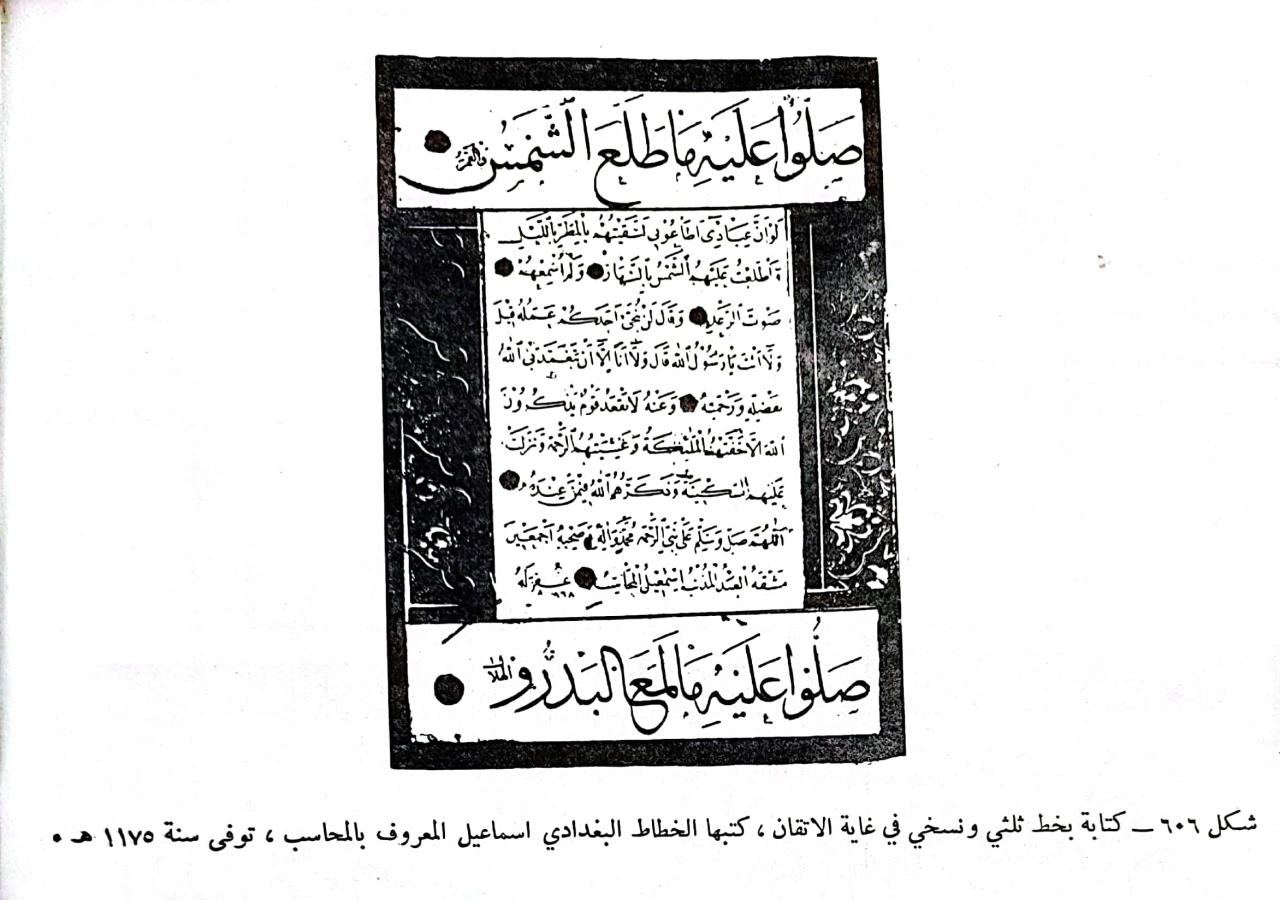 صلوا عليه ما طلع الشمس والقمر
لو ان عبادي اطاعوني لسقيتهم بالمطر بالليل
واطلعت عليهم الشمس بالنهار ولم اسمعهم
صوت الرعد وقال لن ينجي احدكم عمله قيل
ولا انت يا رسول الله قال ولا انا الا ان يتغمدني الله
بفضله ورحمته وعنه لا يقعد قوم يذكرون
الله الا حفتهم الملئكة وغشيتهم الرحمة ونزلت
عليهم السكينة وذكرهم الله فيمن عنده
اللهم صل وسلم على نبي الرحمة محمد وآله وصحبه اجمعين
مشقه العبد المذنب اسمعيل المحاسب غفر له
صلوا عليه ما لمع البدر والهلال
شكل ٦٠٦ ــ كتابة بخط ثلثي ونسخي في غاية الاتقان ، كتبها الخطاط البغدادي اسماعيل المعروف بالمحاسب ، توفى سنة ١١٧٥ هـ ٠